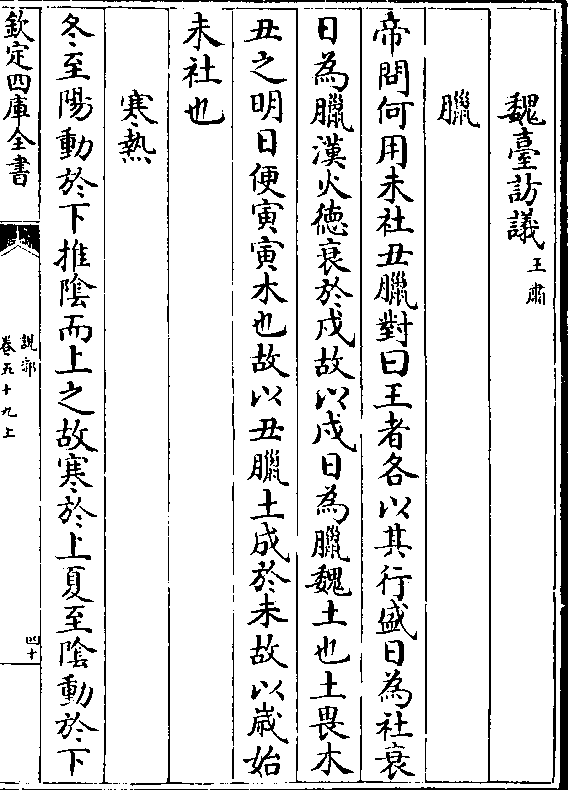 魏臺訪議王肅
臘
帝問何用未社丑臘對曰王者各以其行盛日為社衰
日為臘漢火德衰於戌故以戌日為臘魏土也土畏木
丑之明日便寅寅木也故以丑臘土成於未故以歲始
未社也
寒熱
冬至陽動於下推陰而上之故寒於上夏至陰動於下
欽定四庫全書
說郛
卷五十九上
四十